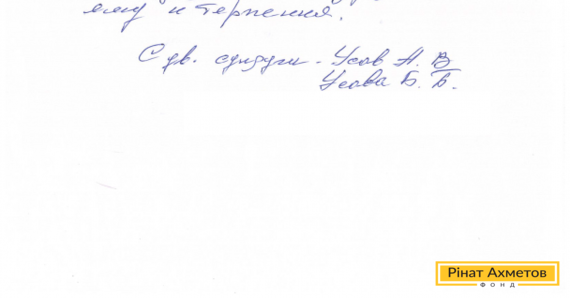 ему и терпения.
С ув. супруги - Усов А. В
Усова Б. Б.
Рінат Ахметов
ФОНД